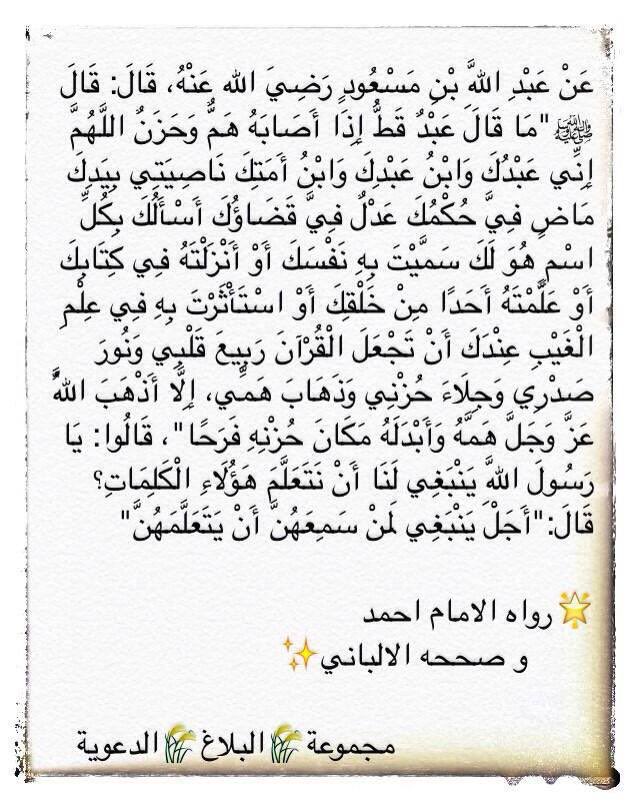 عَنْ عَبْدِ اللَّهِ بْنِ مَسْعُودٍ رَضِيَ الله عَنْهُ، قَالَ: قَالَ
ﷺ "مَا قَالَ عَبْدٌ قَطُّ إِذَا أَصَابَهُ هَمٌّ وَحَزَنٌ اللَّهُمَّ
إِنِّي عَبْدُكَ وَابْنُ عَبْدِكَ وَابْنُ أَمَتِكَ نَاصِيَتِي بِيَدِكَ
مَاضٍ فِيَّ حُكْمُكَ عَدْلٌ فِيَّ قَضَاؤُكَ أَسْأَلُكَ بِكُلِّ
اسْمٍ هُوَ لَكَ سَمَّيْتَ بِهِ نَفْسَكَ أَوْ أَنْزَلْتَهُ فِي كِتَابِكَ
أَوْ عَلَّمْتَهُ أَحَدًا مِنْ خَلْقِكَ أَوْ اسْتَأْثَرْتَ بِهِ فِي عِلْمِ
الْغَيْبِ عِنْدَكَ أَنْ تَجْعَلَ الْقُرْآنَ رَبِيعَ قَلْبِي وَنُورَ
صَدْرِي وَجِلَاءَ حُزْنِي وَذَهَابَ هَمِّي، إِلَّا أَذْهَبَ اللَّهُ
عَزَّ وَجَلَّ هَمَّهُ وَأَبْدَلَهُ مَكَانَ حُزْنِهِ فَرَحًا"، قَالُوا: يَا
رَسُولَ اللَّهِ يَنْبَغِي لَنَا أَنْ نَتَعَلَّمَ هَؤُلَاءِ الْكَلِمَاتِ؟
قَالَ:"أَجَلْ يَنْبَغِي لِمَنْ سَمِعَهُنَّ أَنْ يَتَعَلَّمَهُنَّ"
🌟رواه الامام احمد
و صححه الالباني✨
مجموعة🌾البلاغ🌾الدعوية